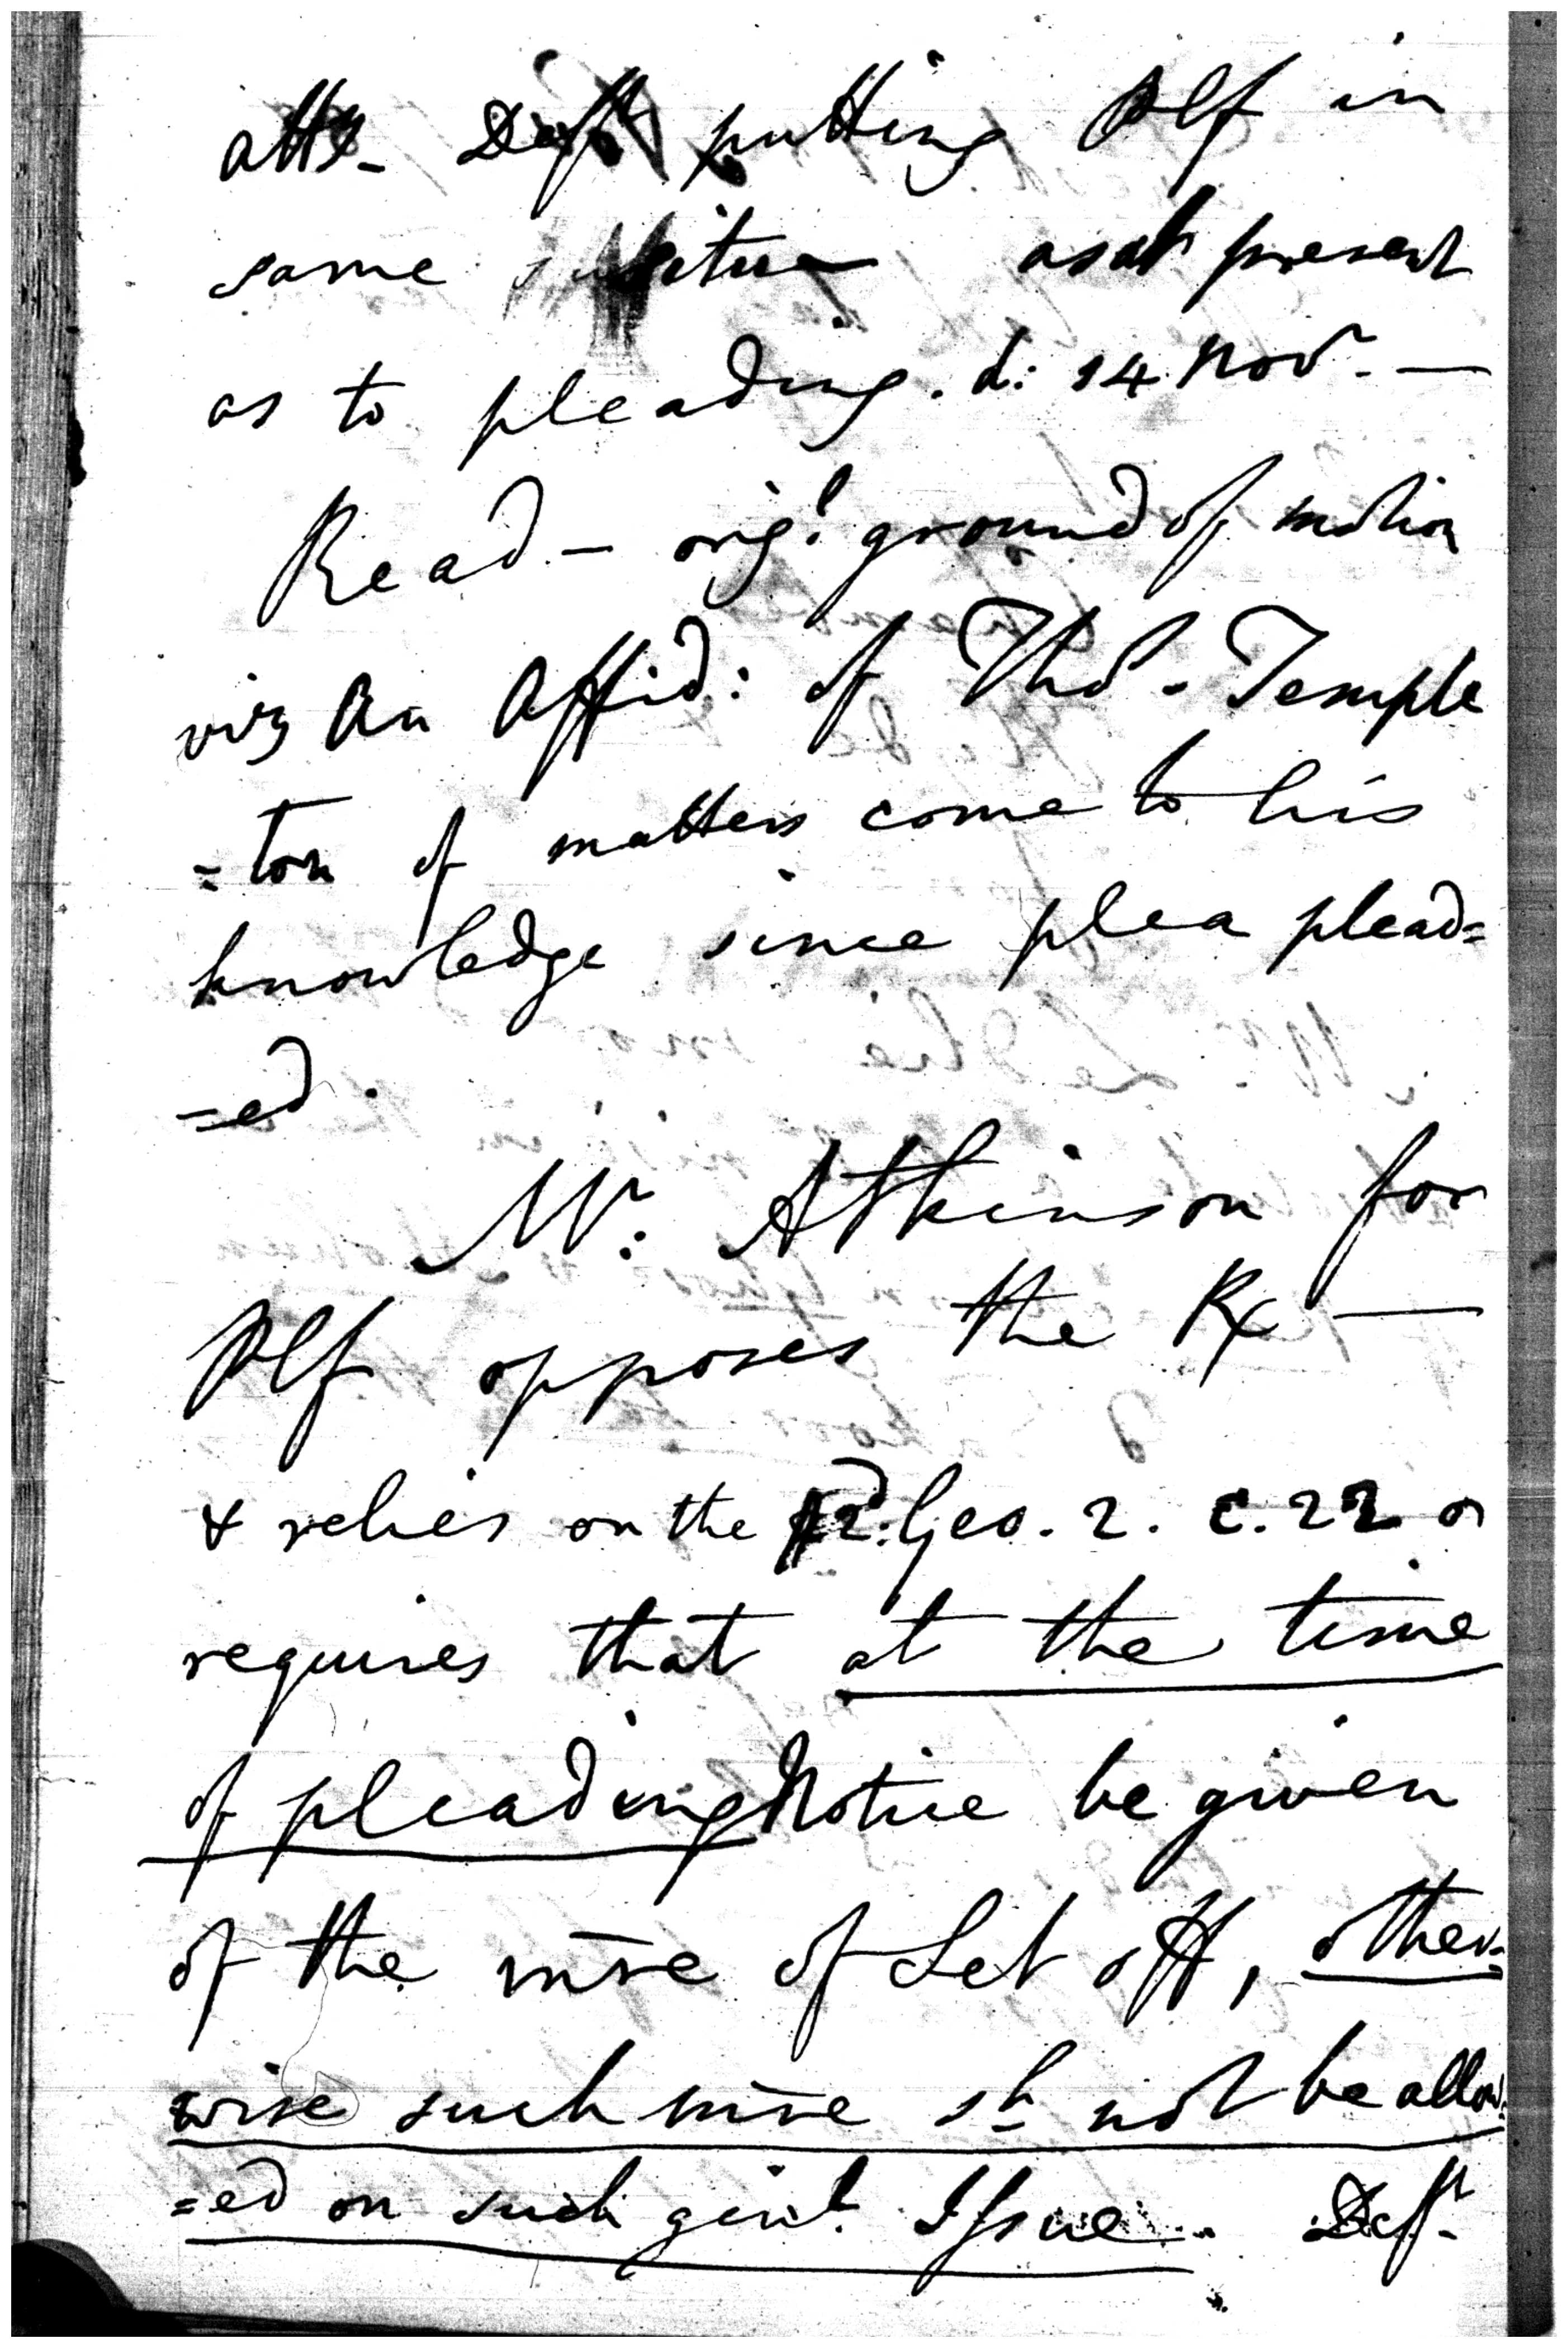 atty- Deft putting Plf in
same situation as at present
as to pleading. d: 14 Novr. —
Read — origl ground of motion
viz an Affid: of Thos. Temple
=ton of matters come to his
knowledge since plea plead=
=ed.
Mr: Atkinson for
Plf opposes the R —
& relies on the 2d. Geo. 2. c. 22
requires that at the time
of pleading Notice be given
of the mre of Set off, other=
wise such mre sh not be allow=
=ed on such genl. Issue. Deft-